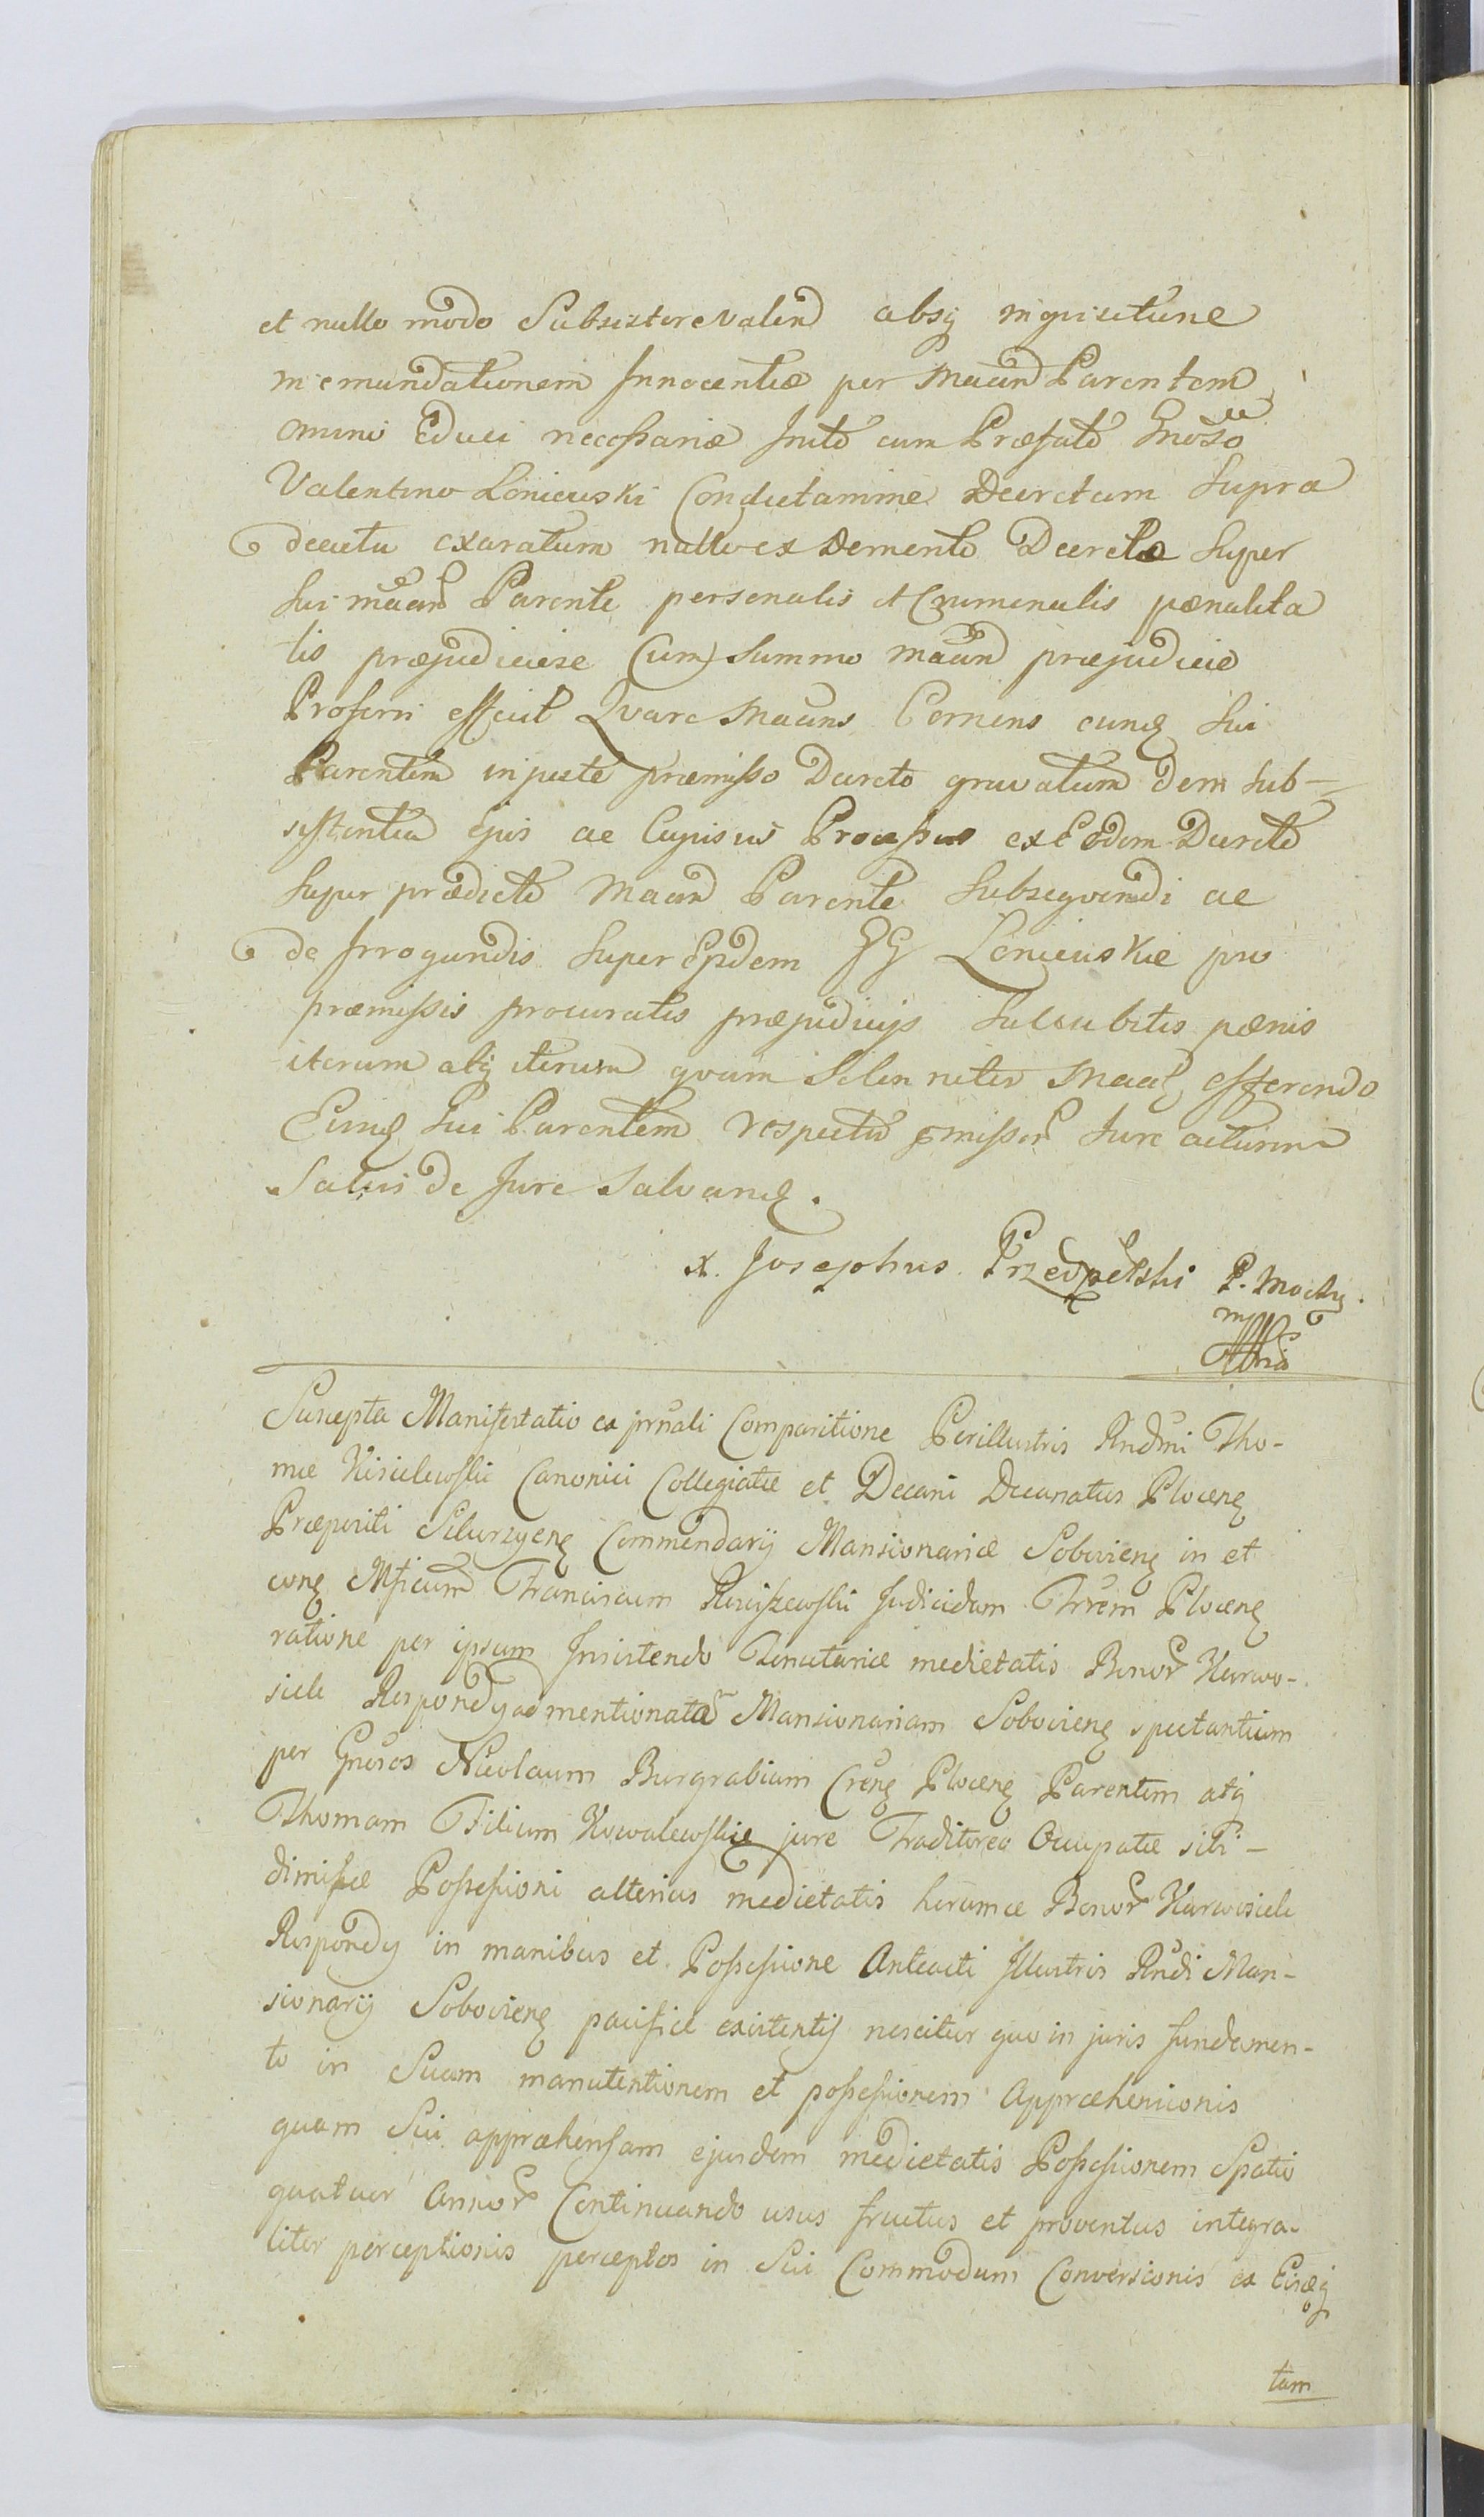 et nullo modo Subsistere valend absq inquisitione
in emundationem Innocentiæ per Maand Parentem
omni Educi necessariæ Inito cum Præfato Gnoso
Valentino Loniewski Condictamine Decretum Supra
decreta exaratum nullo ex Demento Decreto Super
Sui maan Parente personalis et Criminalis pænalita
tis præjudiciose Cum Summo maand præjudicio
Proferri effecit Qvare Maans Cernens eunq Sui
Parentem injuste præmisso Decreto gravatum dem sub-
sistentia Ejus ac Cujusvis Processus ex Eodem Decreto
Super prædicto Maand Parente Subseqvendi ac
de Irrogandis Super Ejsdem GG Loniewskie pro
præmissis procuratis præjudicijs Succubitis pænis
iterum atq iterum qvam Solenniter Maat offerendo
Eunq Sui Parentem respectu pmissor Jure acturum
Salvis de Jure Salvanq.
x. Josephus Przedpełski P. Mochq.
mpp
Suscepta Manifestatio ex prnali Comparitione Perillustris Rndmi Tho-
mæ Kisielewski Canonici Collegiatæ et Decani Decanatus Plocenq
Præpositi Selurzyenq Commendarij Mansionariæ Sobovienq in et
conq Mficum Franciscum Rosciszewski Judicidem Trrem Plocenq
ratione per ipsum Insistendo Tenutariæ medietatis Bonor Karwo-
siele Respondy ad mentionatã Mansionariam Sobovienq spectantium
per Gnosos Nicolaum Burgrabium Crenq Plocenq Parentem atq
Thomam Filium Kowalewskie jure Traditoreo Occupatæ sibi-
dimissæ Possessioni alterius medietatis horumce Bonor Karwosiele
Respondy in manibus et Possessione Anteacti Illustris Rndi Man-
sionarij Sobovienq pacifice existentis nescitur quo in juris fundamen-
to in Suam manutentionem et possessionem Appræhensionis
quam Sui appræhensam ejusdem medietatis Possessionem Spatio
quatuor Annor Continuando usus fructus et proventus integra-
liter perceptionis perceptos in Sui Commodum Conversionis ex Eisq
tam